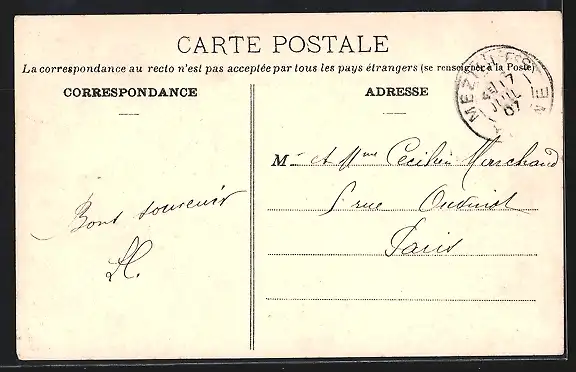 CARTE POSTALE
La correspondance au recto n'est pas acceptée par tous les pays étrangers (se renseigner à la Poste)
CORRESPONDANCE
ADRESSE
17
JUIL
07
M. et Mme Cecilien Marchand
rue Oudinot
Paris
Bons souvenirs
H.